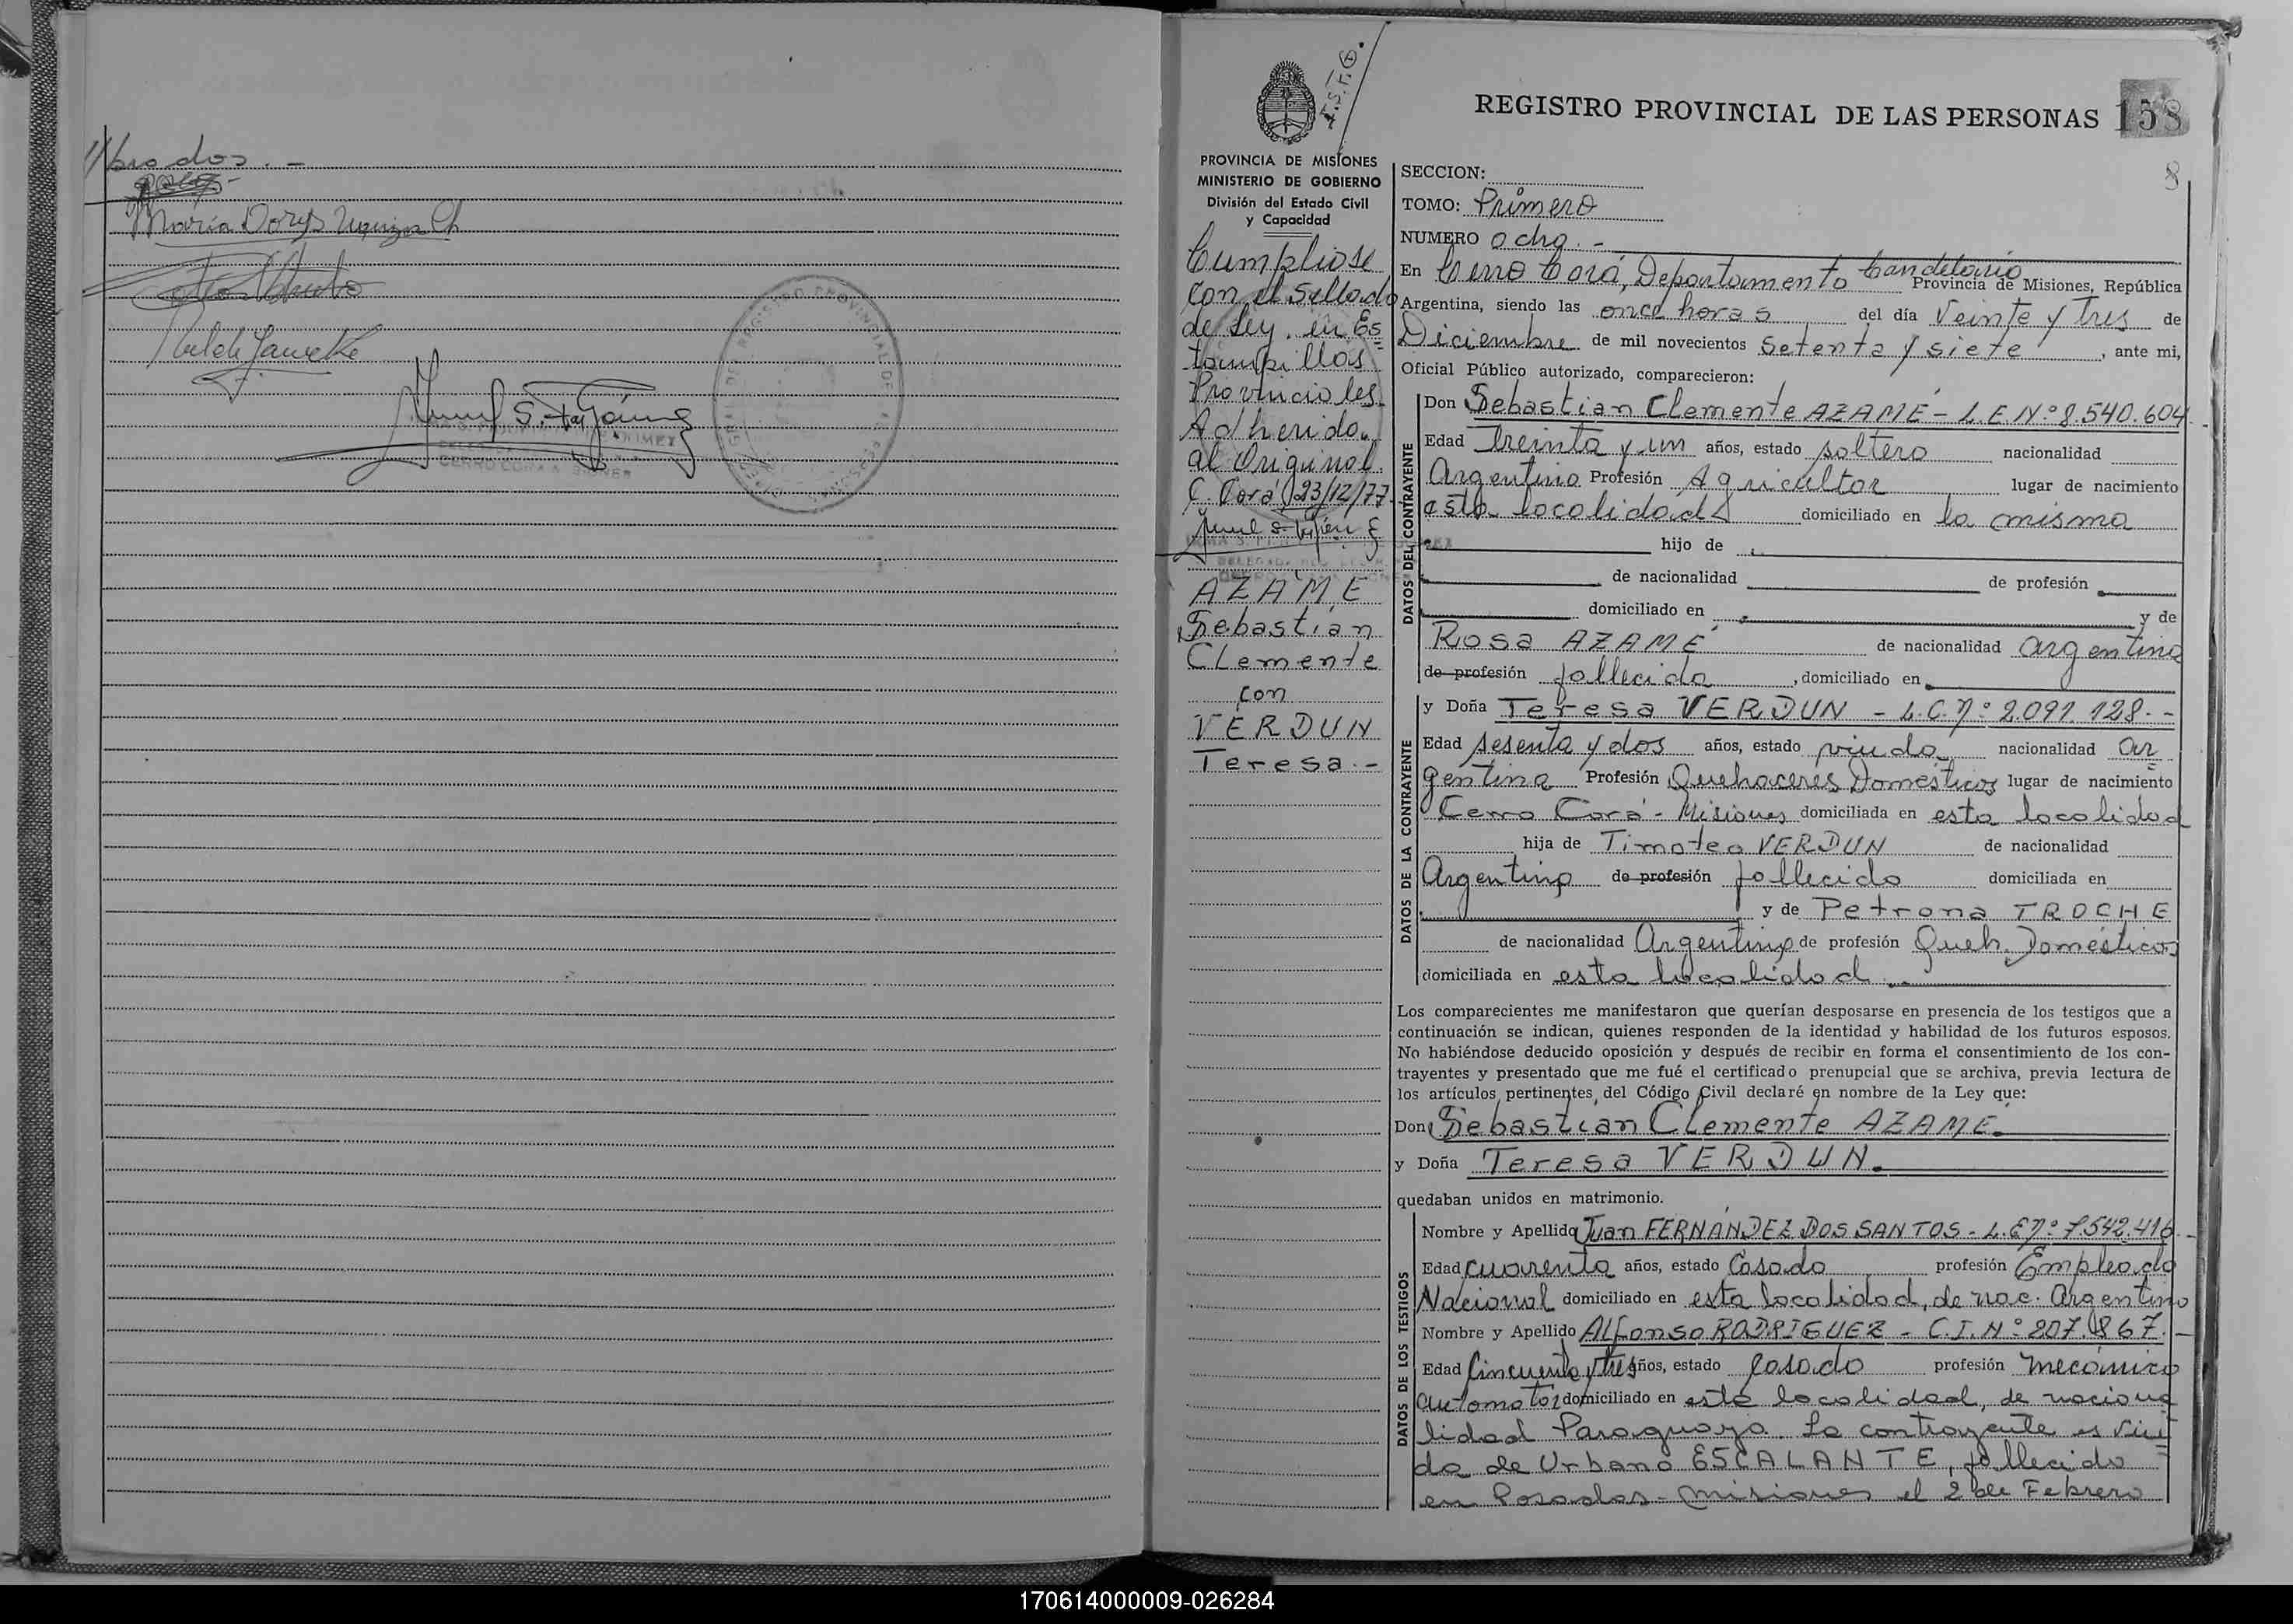 brados. -
María Dorys Urquiza Ch
S.
CERRO CORA
REGISTRO PROVINCIAL DE LAS PERSONAS
158
8
PROVINCIA DE MISIONES
MINISTERIO DE GOBIERNO
División del Estado Civil
y Capacidad
Cumpliose
con el Sellado
de Ley, en Es
tampillas
Provinciales
Adherido
al Original.
C. Corá 23/12/77
AZAMÉ
Sebastián
Clemente
con
VERDUN
Teresa. -
SECCION:
TOMO: Primero
NUMERO ocho. -
En Cerro Corá, Departamento Candelaria Provincia de Misiones, República
Argentina, siendo las once horas del día Veinte y Tres de
Diciembre de mil novecientos Setenta y siete, ante mi,
Oficial Público autorizado, comparecieron:
DATOS DEL CONTRAYENTE
Don Sebastián Clemente AZAMÉ - L.E.Nº 8.540.604
Edad Treinta y un años, estado soltero nacionalidad
Argentino Profesión Agricultor lugar de nacimiento
esta localidad domiciliado en la misma
hijo de
de nacionalidad de profesión
domiciliado en y de
Rosa AZAMÉ de nacionalidad argentina
de profesión fallecida, domiciliado en
DATOS DE LA CONTRAYENTE
y Doña Teresa VERDUN - L.C.Nº 2.091.128. -
Edad sesenta y dos años, estado viuda nacionalidad ar
gentina Profesión Quehaceres Domésticos lugar de nacimiento
Cerro Corá - Misiones domiciliada en esta localidad
hija de Timoteo VERDUN de nacionalidad
Argentino de profesión fallecido domiciliada en
y de Petrona TROCHE
de nacionalidad Argentina de profesión Queh. Domésticos
domiciliada en esta localidad.
Los comparecientes me manifestaron que querían desposarse en presencia de los testigos que a
continuación se indican, quienes responden de la identidad y habilidad de los futuros esposos.
No habiéndose deducido oposición y después de recibir en forma el consentimiento de los con-
trayentes y presentado que me fué el certificado prenupcial que se archiva, previa lectura de
los artículos pertinentes del Código Civil declaré en nombre de la Ley que:
Don Sebastián Clemente AZAMÉ.
y Doña Teresa VERDUN.
quedaban unidos en matrimonio.
DATOS DE LOS TESTIGOS
Nombre y Apellido Juan FERNÁNDEZ DOS SANTOS - L.E.Nº 7.542.416
Edad cuarenta años, estado Casado profesión Empleado
Nacional domiciliado en esta localidad, de nac. Argentino
Nombre y Apellido Alfonso RODRIGUEZ - C.I.Nº 207.867. -
Edad Cincuenta y tres años, estado casado profesión mecánico
automotor domiciliado en esta localidad, de naciona
lidad Paraguaya. La contrayente es viu
da de Urbano ESCALANTE, fallecido
en Posadas - Misiones el 2 de Febrero
170614000009-026284